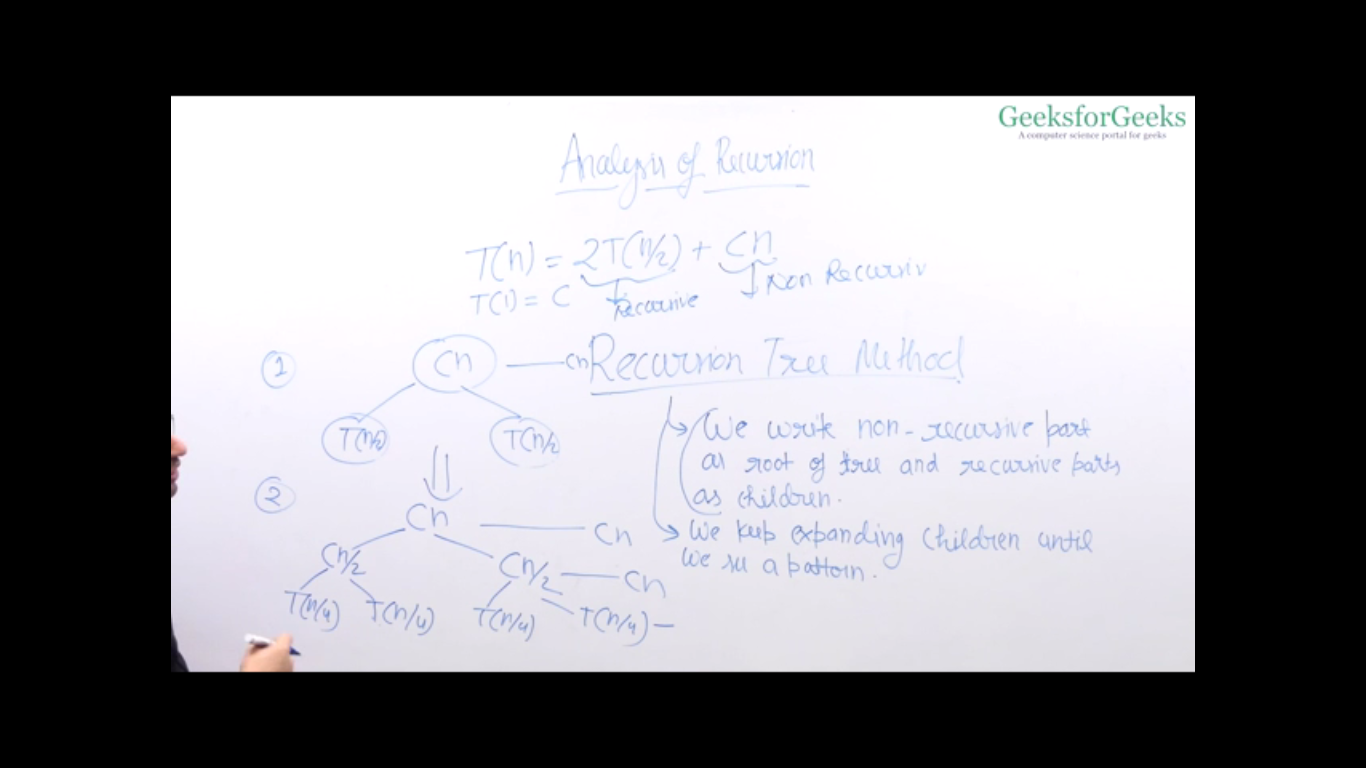 GeeksforGeeks
A computer science portal for geeks
Analysis of Recursion
T(n) = 2T(n/2) + Cn
T(1) = C
Recursive
Non Recursiv
1
Cn
Cn
T(n/2)
T(n/2)
Recursion Tree Method
We write non-recursive part
as root of tree and recursive parts
as children.
We keep expanding children until
we see a pattern.
2
Cn
Cn
Cn/2
Cn/2
Cn
T(n/4)
T(n/4)
T(n/4)
T(n/4)